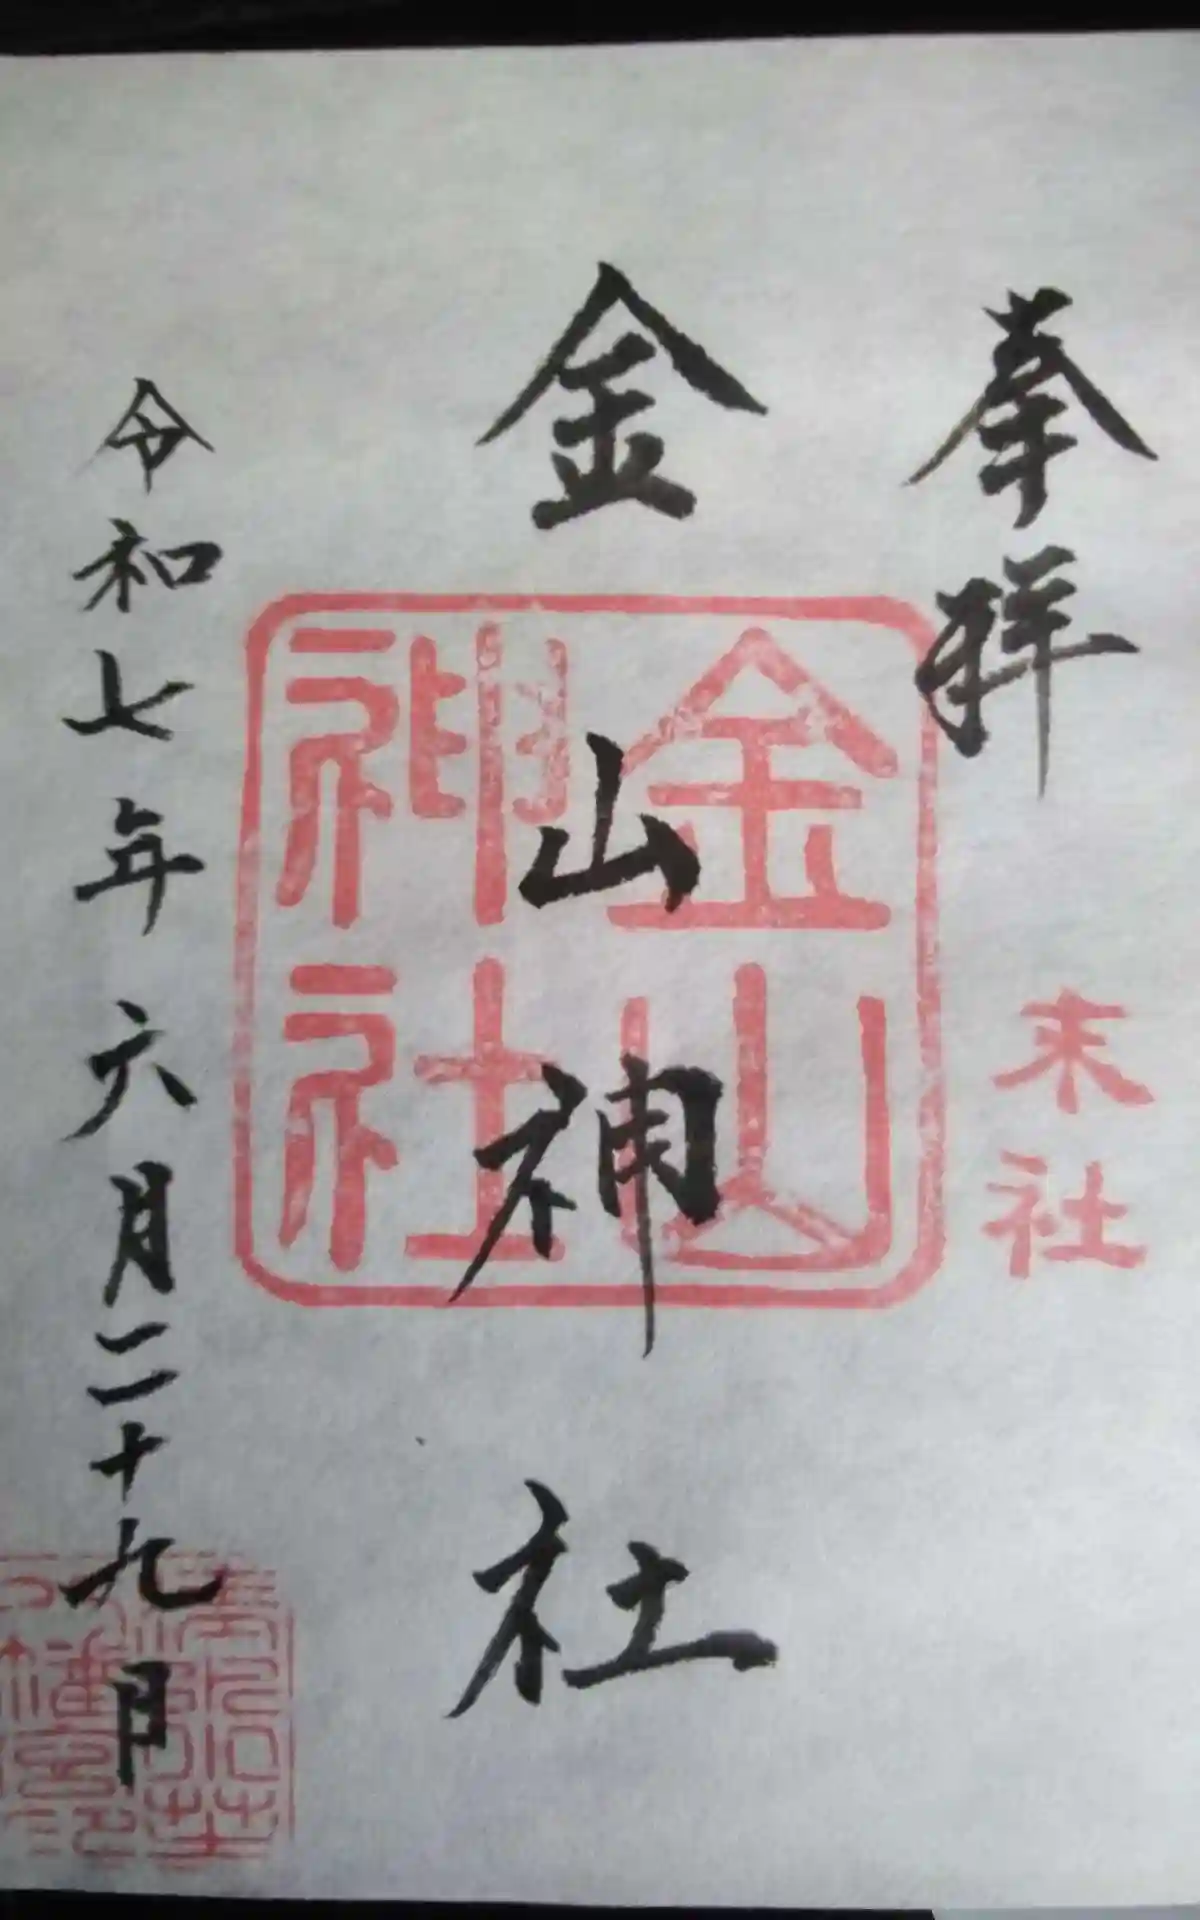 奉拜
末社
金山神社
金山
神社
令和七年六月二十九日